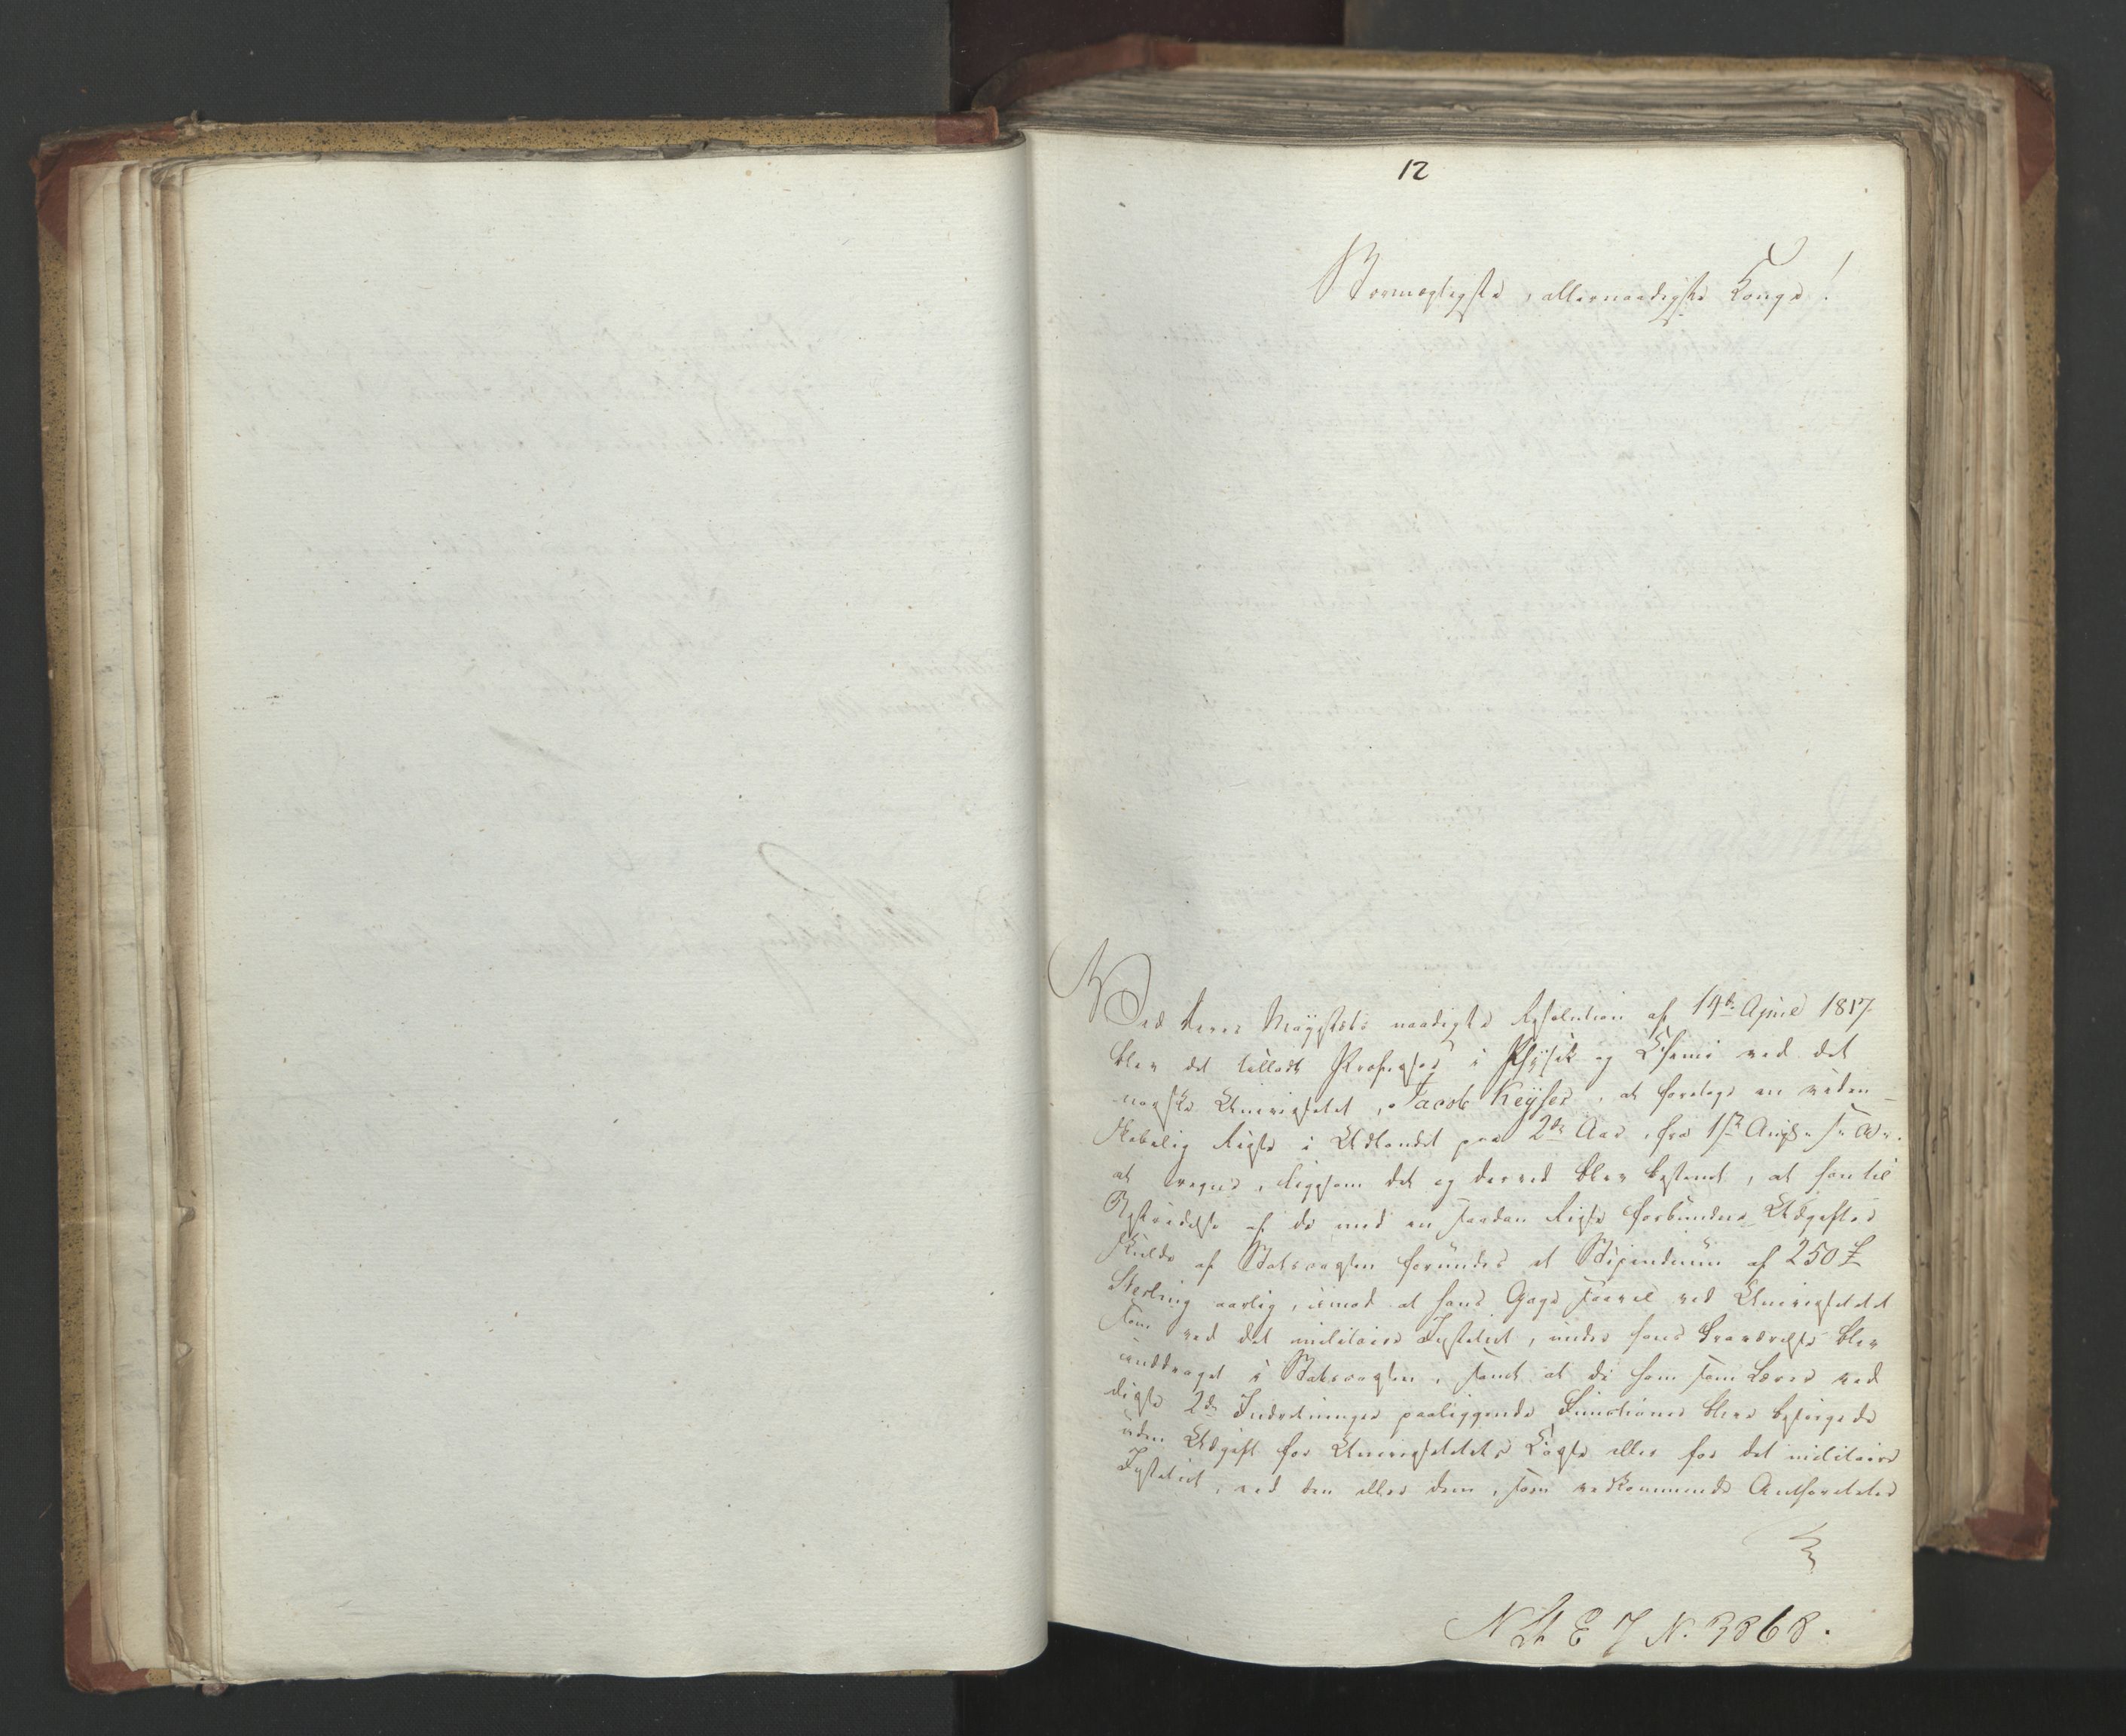 12
Stormægtigste, allernaadigste Konge!
Ved Deres Majestæts naadigste Resolution af 14de April 1817
blev det tilladt Professor i Physik og Chemie ved det
norske Universitet, Jacob Keyser, at foretage en viden-
skabelig Reise i Udlandet paa 2de Aar, fra 1ste Aug. s. A.
at regne, ligesom det og derved blev bestemt, at han til
Bestridelse af de med en saadan Reise forbundne Udgifter
skulde af Statscassen forundes et Stipendium af 250 £
Sterling aarlig, imod at hans Gage saavel ved Universitetet
som ved det militaire Institut, under hans Fraværelse blev
inddraget i Statscassen, samt at de ham som Lærer ved
disse 2de Indretninger paaliggende Functioner bleve besørgede
uden Udgift for Universitetets Casse eller for det militaire
Institut, ved den eller dem, som vedkommende Authoriteter
E J N. 3868.